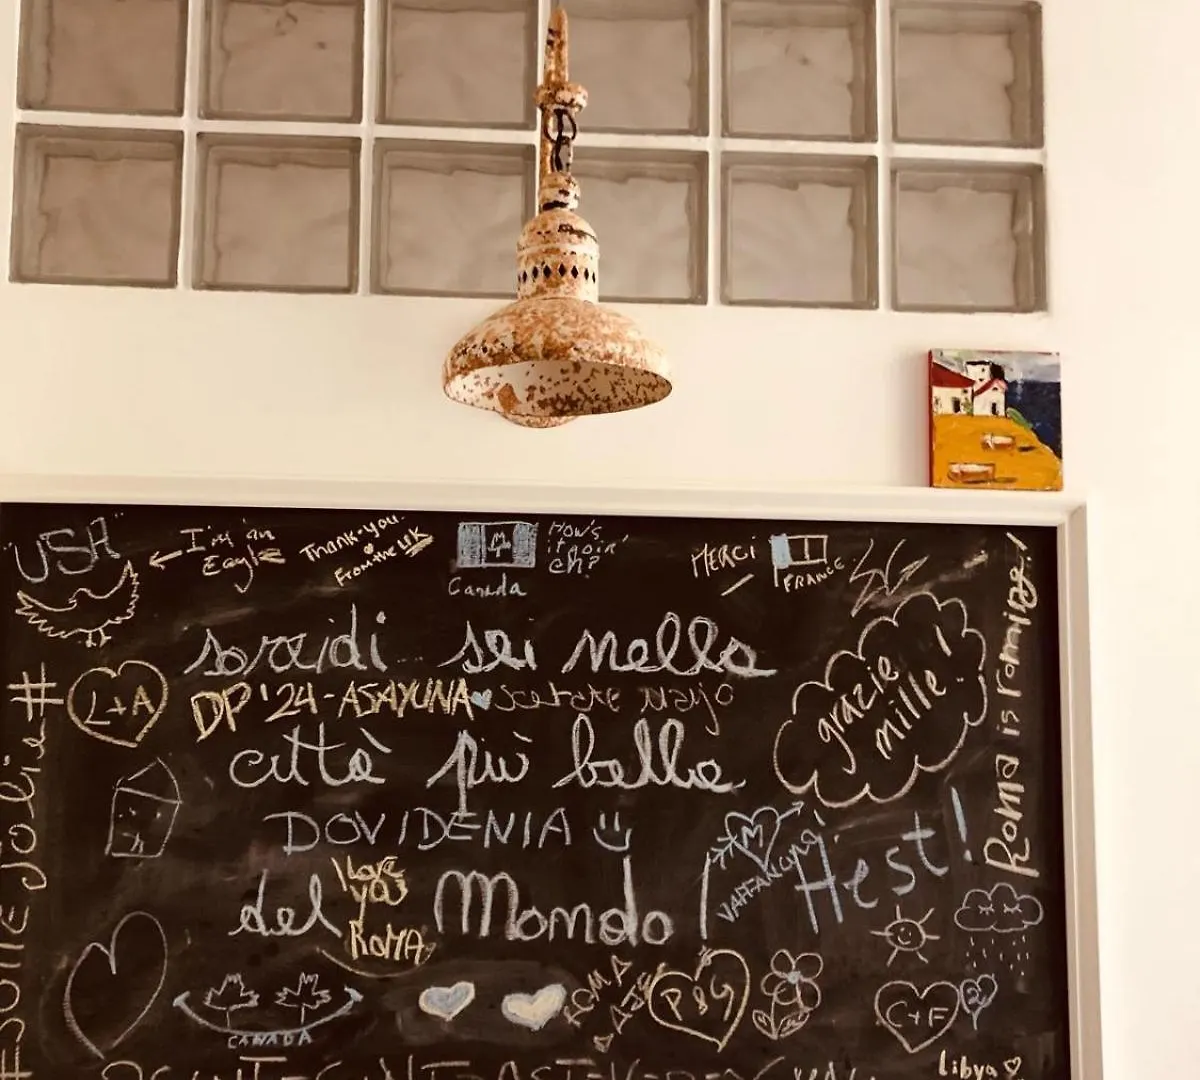 USA
I'm an Eagle
Thank you
From the UK
Canada
How's
it goin'
eh?
MERCI
FRANCE
Roma is roming!
sorridi sei nella
L+A
DP '24-ASAYUNA
grazie
mille!
città più bella
DOVIDENIA
I love
you
ROMA
del Mondo!
M
Hest!
CANADA
ROMA
P&G
C+F
Libya